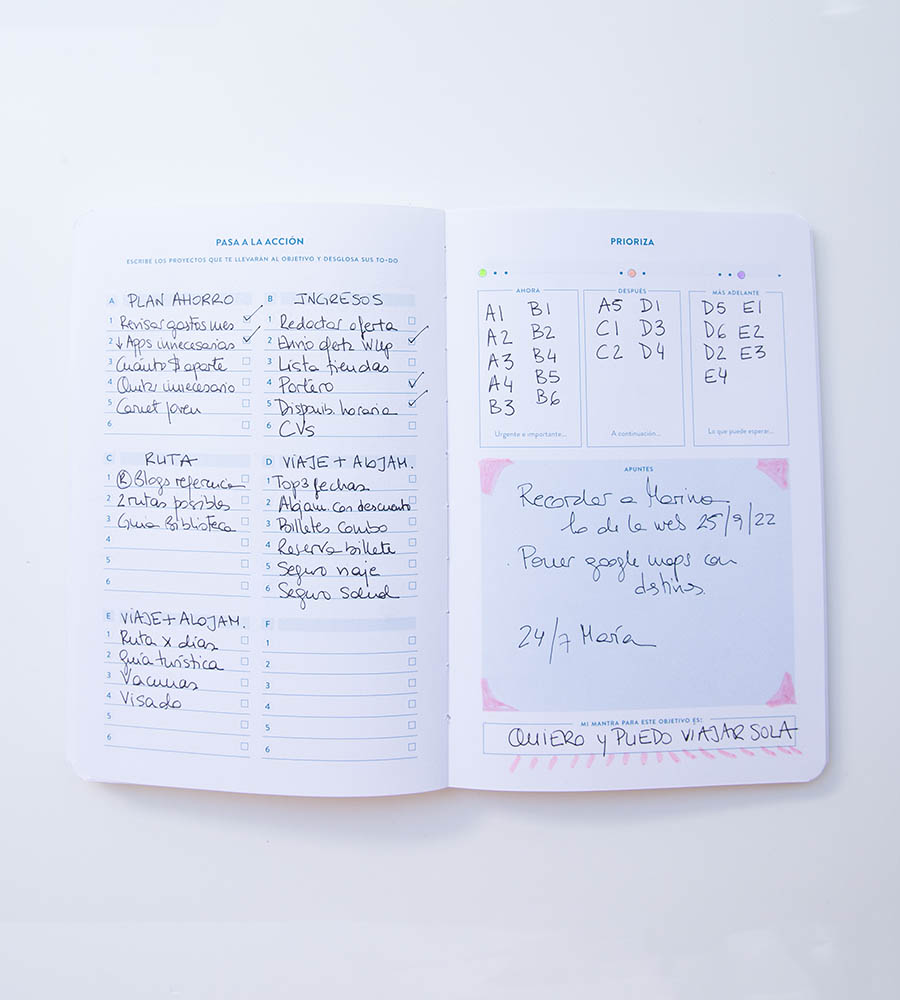 PASA A LA ACCIÓN
ESCRIBE LOS PROYECTOS QUE TE LLEVARÁN AL OBJETIVO Y DESGLOSA SUS TO-DO
A PLAN AHORRO
1 Revisar gastos mes
2 ↓ Apps innecesarias
3 Cuánto $ aparte
4 Quitar innecesario
5 Carnet joven
6
B INGRESOS
1 Redactar oferta
2 Envío oferta Wup
3 Lista tiendas
4 Portero
5 Disponib. horaria
6 CVs
C RUTA
1 Blogs referencia
2 2 rutas posibles
3 Guía Biblioteca
4
5
6
D VIAJE + ALOJAM.
1 Top 3 fechas
2 Alojam. con descuento
3 Billetes combo
4 Reserva billete
5 Seguro viaje
6 Seguro salud
E VIAJE + ALOJAM.
1 Ruta x días
2 guía turística
3 Vacunas
4 Visado
5
6
F
1
2
3
4
5
6
PRIORIZA
AHORA
A1 B1
A2 B2
A3 B4
A4 B5
B3 B6
Urgente e importante...
DESPUÉS
A5 D1
C1 D3
C2 D4
A continuación...
MÁS ADELANTE
D5 E1
D6 E2
D2 E3
E4
Lo que puede esperar...
APUNTES
Recordar a Marina
lo de la web 25/9/22
. Poner google maps con
destinos.
24/7 María
MI MANTRA PARA ESTE OBJETIVO ES:
QUIERO y PUEDO VIAJAR SOLA